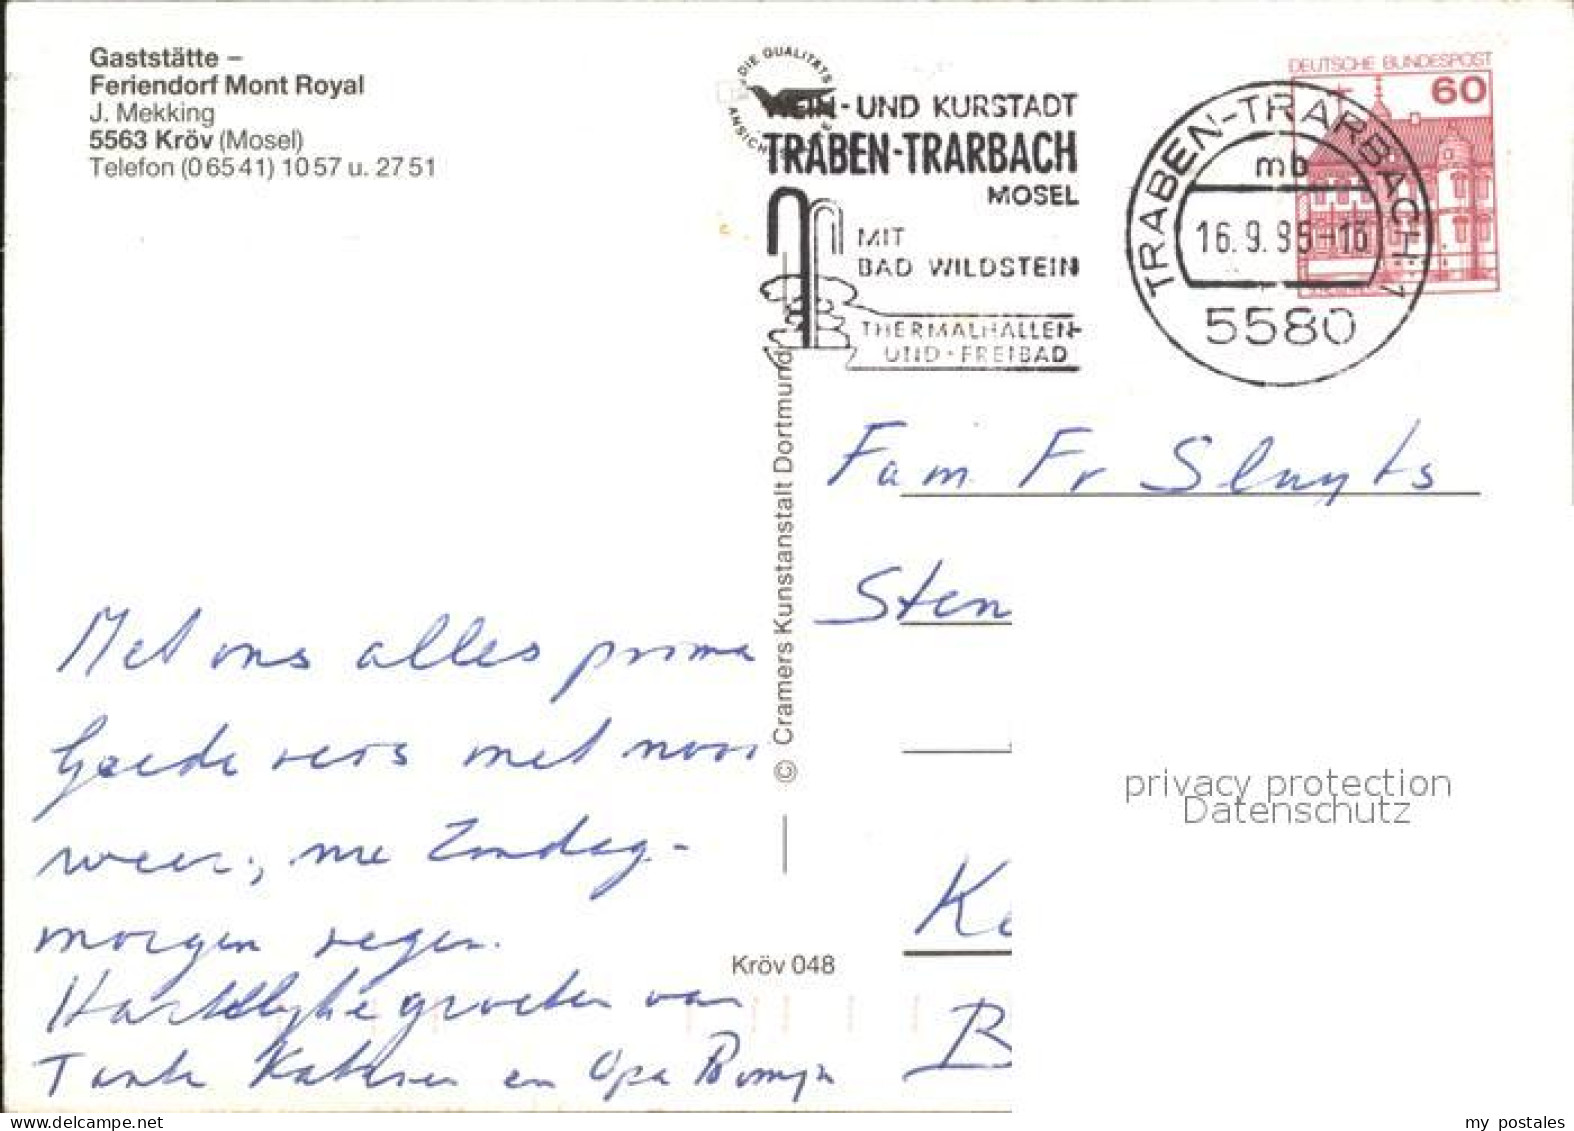 Gaststätte –
Feriendorf Mont Royal
J. Mekking
5563 Kröv (Mosel)
Telefon (0 65 41) 10 57 u. 27 51
DIE QUALITÄTS
ANSICH
WEIN- UND KURSTADT
TRABEN-TRARBACH
MOSEL
MIT
BAD WILDSTEIN
THERMALHALLEN-
UND-FREIBAD
DEUTSCHE BUNDESPOST
60
TRABEN-TRARBACH 1
mb
16.9.
5580
Fam Fr Sluyts
Sten
Ke
B
Met ons alles prima
Goede reis met mooi
weer, me Zondag-
morgen regen.
Hartelijke groeten van
Tante en Opa
© Cramers Kunstanstalt Dortmund
Kröv 048
privacy protection
Datenschutz
my postales